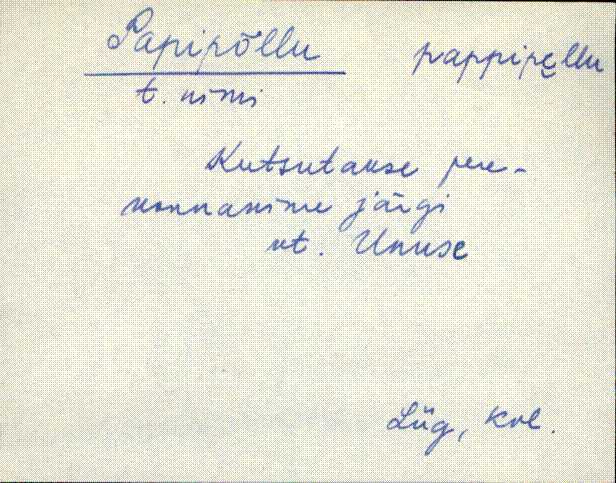 Papipõllu pappipe̮llu
t. nimi
Kutsutakse pere-
konnanime järgi
vt. Unuse
Lüg, Kol.